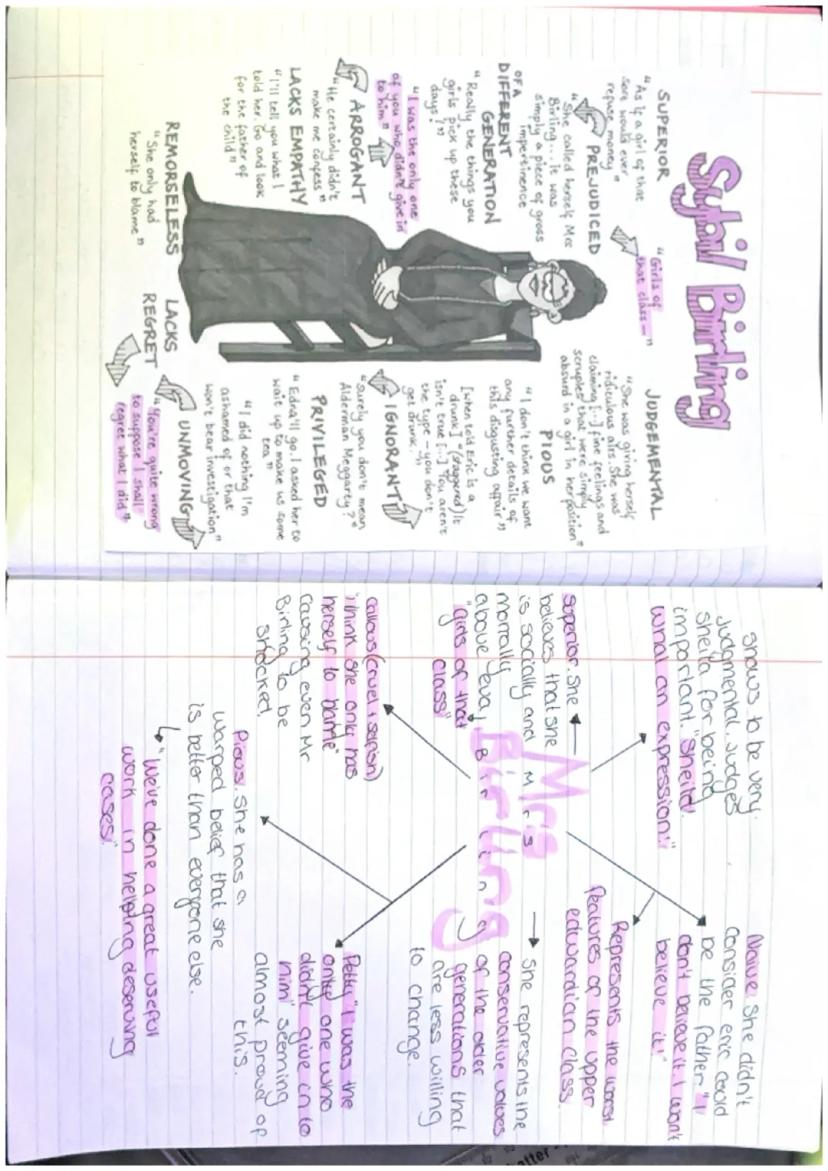 Sybil Birling
SUPERIOR
"As if a girl of that
sort would ever
refuse money"
PREJUDICED
"She called herself Mrs
Birling... It was
simply a piece of gross
impertinence
OF A
DIFFERENT
GENERATION
"Really the things you
girls pick up these
days!"
"I was the only one
of you who didn't give in
to him"
ARROGANT
"He certainly didn't
make me confess"
LACKS EMPATHY
"I'll tell you what I
told her. Go and look
for the father of
the child"
REMORSELESS
"She only had
herself to blame"
"Girls of
that class—"
JUDGEMENTAL
"She was giving herself
ridiculous airs. She was
claiming [...] fine feelings and
scruples that were simply
absurd in a girl in her position"
PIOUS
"I don't think we want
any further details of
this disgusting affair"
[when told Eric is a
drunk] "(staggered) It
isn't true [...] You aren't
the type – you don't
get drunk."
IGNORANT
"Surely you don't mean
Alderman Meggarty?"
PRIVILEGED
"Edna'll go. I asked her to
wait up to make us some
tea"
"I did nothing I'm
ashamed of or that
won't bear investigation"
UNMOVING
LACKS
REGRET
"You're quite wrong
to suppose I shall
regret what I did"
Mrs
Birling
Mrs
Birling
shows to be very
Judgmental. Judges
Sheila for being
important. "Sheila!
What an expression!"
superior. She
believes that she
is socially and
morally
above eva
"girls of that
class"
callous (cruel + selfish)
"I think she only has
herself to blame"
Causing even Mr
Birling to be
shocked.
Pious. She has a
warped belief that she
is better than everyone else.
"We've done a great useful
work in helping deserving
cases"
Naive. She didn't
consider eric could
be the father "I
don't believe it. I won't
believe it!"
Represents the worst
features of the upper
edwardian class.
She represents the
conservative values
of the older
generations that
are less willing
to change.
Petty "I was the
only one who
didn't give in to
him" seeming
almost proud of
this.